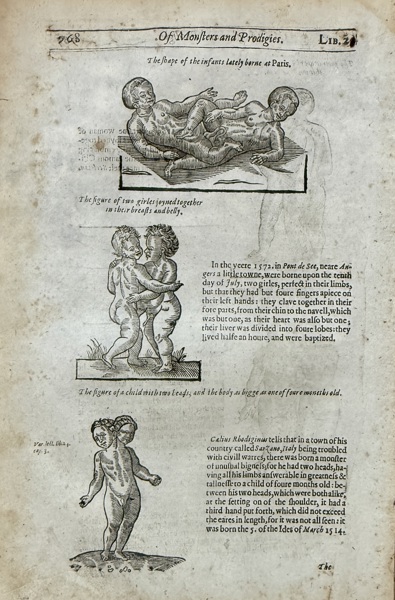 768 Of Monſters and Prodigies. LIB. 2
The ſhape of the infants lately borne at Paris.
The figure of two girles joyned together
in their breaſts and belly.
In the yeere 1572. in Pont de See, neare An-
gers a little towne, were borne upon the tenth
day of July, two girles, perfect in their limbs,
but that they had but foure fingers apiece on
their left hands: they clave together in their
fore parts, from their chin to the navell, which
was but one, as their heart was alſo but one;
their liver was divided into foure lobes: they
lived halfe an houre, and were baptized.
The figure of a child with two heads, and the body as bigge as one of foure moneths old.
Cælius Rhodiginus tells that in a town of his
country called Sarzano, Italy being troubled
with civill warres, there was borne a monſter
of unuſual bigneſs; for he had two heads, ha-
ving all his limbs anſwerable in greatneſs &
tallneſſe to a child of foure months old: be-
tween his two heads, which were both alike,
at the ſetting on of the ſhoulder, it had a
third hand put forth, which did not exceed
the eares in length, for it was not all ſeen: it
was born the 5. of the Ides of March 1514.
The